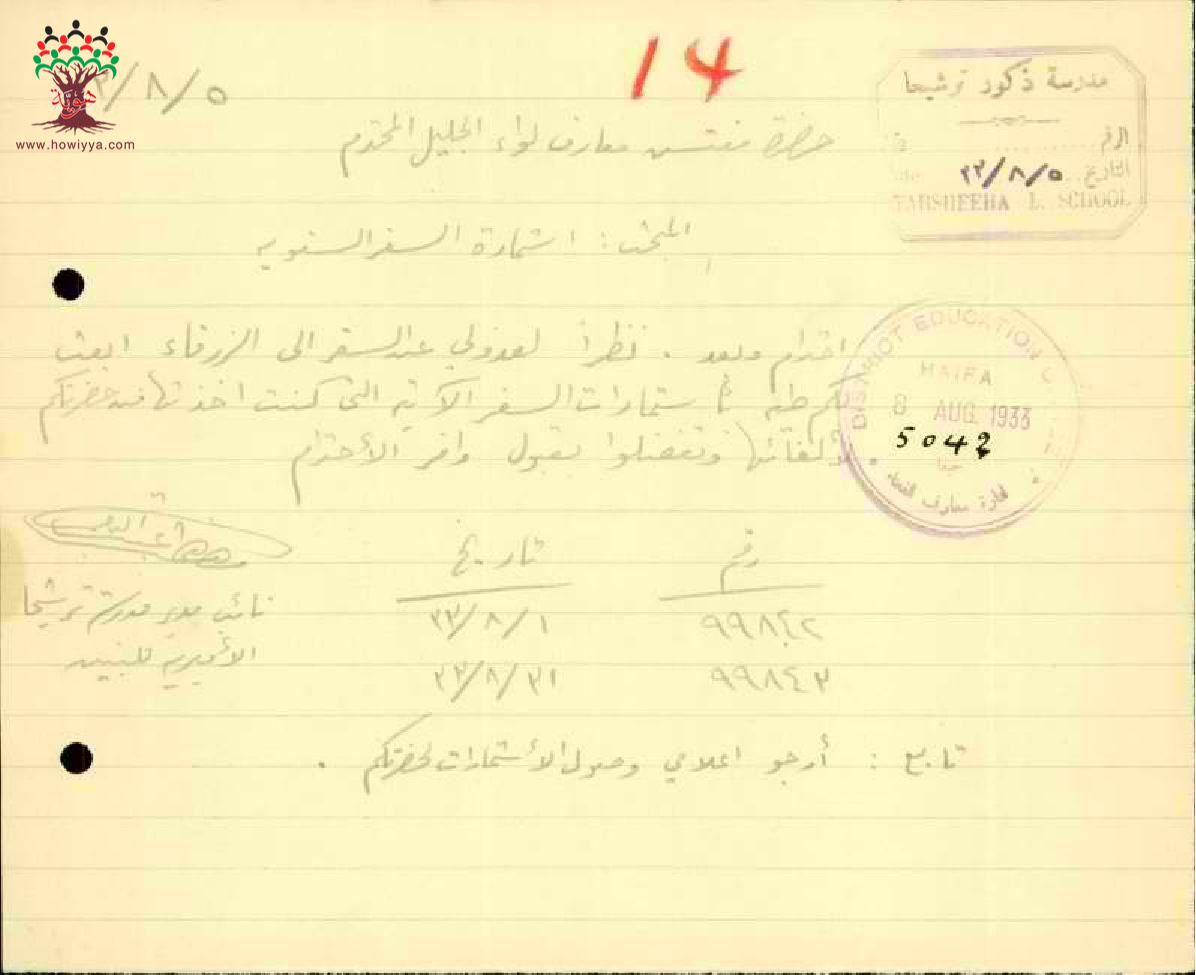 14
مدرسة ذكور ترشيحا
الرقم
التاريخ ٣٣/٨/٥
TARSHEEHA L. SCHOOL
هوية
www.howiyya.com
٣٣/٨/٥
حضرة مفتش معارف لواء الجليل المحترم
المبحث : استمارة السفر السنويه
احترام وبعد . نظراً لعدولي عن السفر الى الزرقاء ابعث
لكم طيه استمارات السفر الآتيه التي كنت اخذتها من حضرتكم
لألغائها وتفضلوا بقبول وافر الأحترام
DISTRICT EDUCATION
HAIFA
8 AUG 1933
5042
حيفا
رقم تاريخ
٩٩٨٤٢ ٣٣/٨/١
٩٩٨٤٣ ٣٣/٨/٣١
نائب مدير مدرسة ترشيحا
الأميرية للبنين
تابع : أرجو اعلامي وصول الأستمارات لحضرتكم .